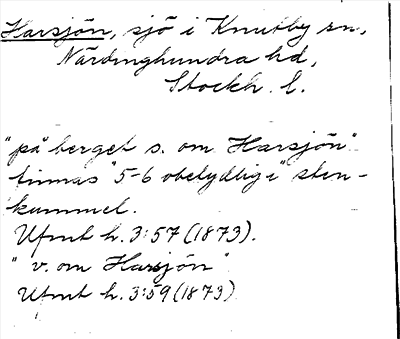 Harsjön, sjö i Knutby sn,
Närdinghundra hd,
Stockh. l.
"på berget s. om Harsjön"
finnas "5-6 obetydliga" sten-
kummel.
Ufmt h. 3:57 (1873).
"v. om Harsjön"
Ufmt h. 3:59 (1873)